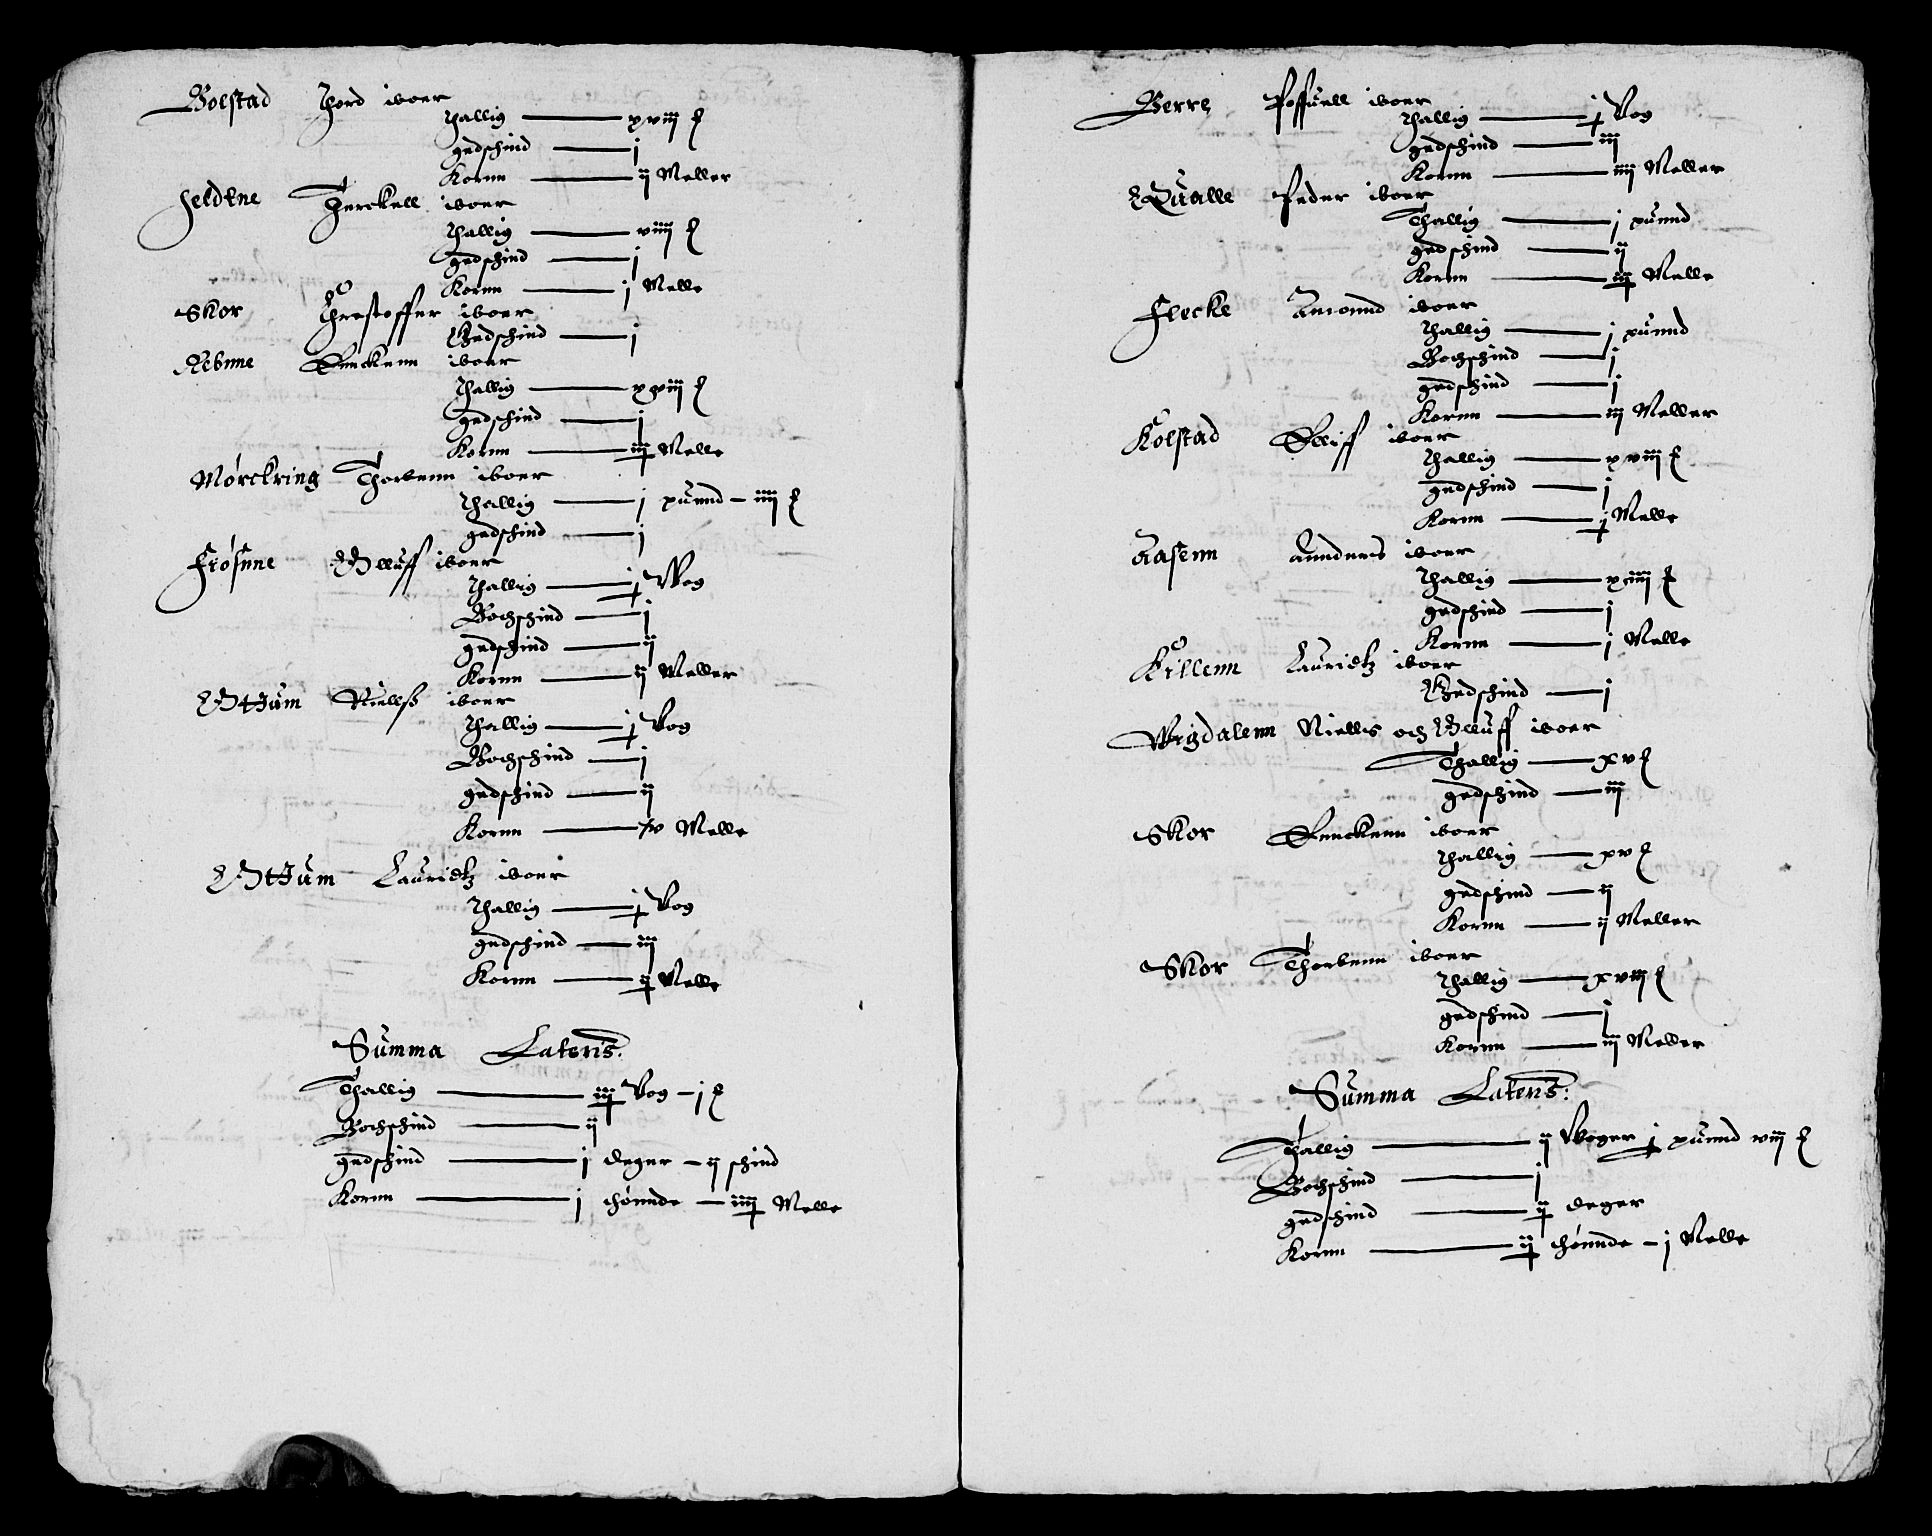 Bolstad Thord iboer
Thallig — xviij ℔
gedschind — j
Kornn — ij Meller
Jeldtne Terckell iboer
Thallig — viiij ℔
gedschind — j
Kornn — j Melle
Skor Chrestoffer iboer
Gedschind — j
Rebnne Enckenn iboer
Thallig — xxviij ℔
gedschind — j
Kornn — iij Melle
Mørckring Thorbenn iboer
Thallig — j puennd — iiij ℔
gedschind — j
Frøsne Olluff iboer
Thallig — j Vog
Bochschind — j
gedschind — ij
Kornn — ij Meller
Ottum Niels iboer
Thallig — j Vog
Bochschind — j
gedschind — ij
Kornn — Melle
Ottum Lauridtz iboer
Thallig — j Vog
gedschind — iij
Kornn — ij Melle
Summa Lateris:
Thallig — iiij Vog — j ℔
Bochschind — ij
gedschind — j deger — ij schind
Kornn — j thønnde — iiij Melle
Berre Poffuell iboer
Thallig — j Vog
gedschind — iij
Kornn — iiij Meller
Qualle Peder iboer
Thallig — j puennd
gedschind — ij
Kornn — iij Melle
Flecke Amonnd iboer
Thallig — j puennd
Bochschind — j
gedschind — j
Kornn — iij Meller
Kolstad Elliff iboer
Thallig — xviij ℔
gedschind — j
Kornn — j Melle
Aasenn Annders iboer
Thallig — xiiij ℔
gedschind — j
Kornn — j Melle
Killenn Lauridtz iboer
Gedschind — j
Wigdalenn Niellis och Olluff iboer
Thallig — xv ℔
gedschind — iij
Skor Enckenn iboer
Thallig — xv ℔
gedschind — ij
Kornn — ij Meller
Skor Thorbenn iboer
Thallig — xviij ℔
gedschind — j
Kornn — iij Meller
Summa Lateris:
Thallig — ij Woger j puennd viij ℔
Bochschind — j
gedschind — ij deger
Kornn — ij thønnde — j Melle